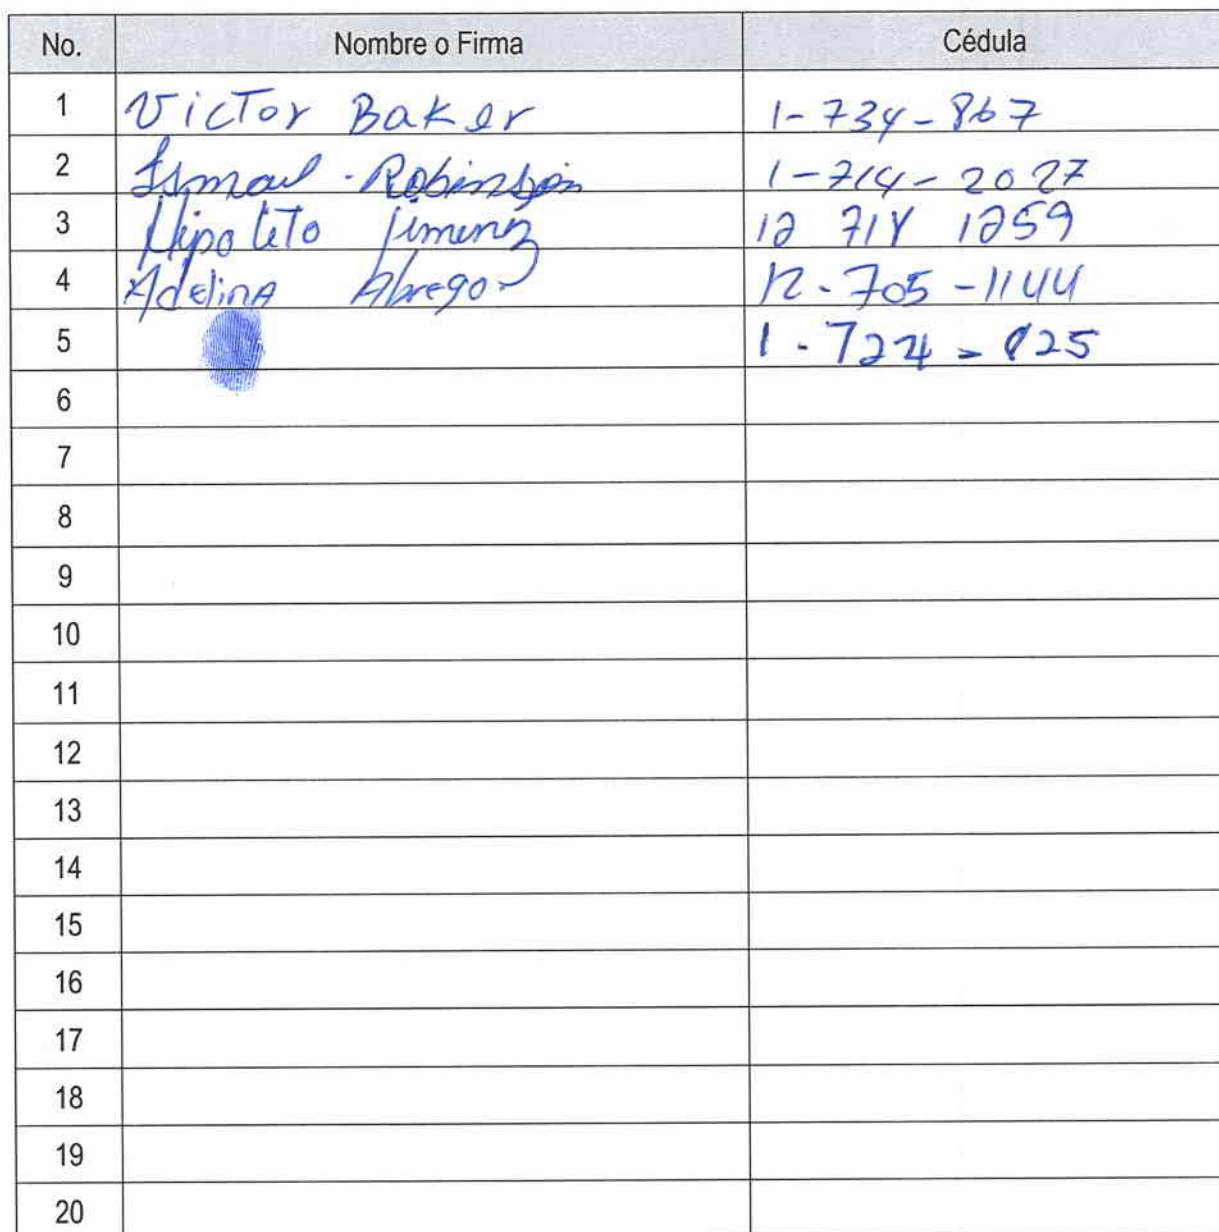 No. Nombre o Firma Cédula
1 Victor Baker 1-734-867
2 Ismael Robinson 1-714-2027
3 Hipolito Jimenez 12 718 1259
4 Adelina Abrego 12-705-1144
5 1-724-825
6
7
8
9
10
11
12
13
14
15
16
17
18
19
20